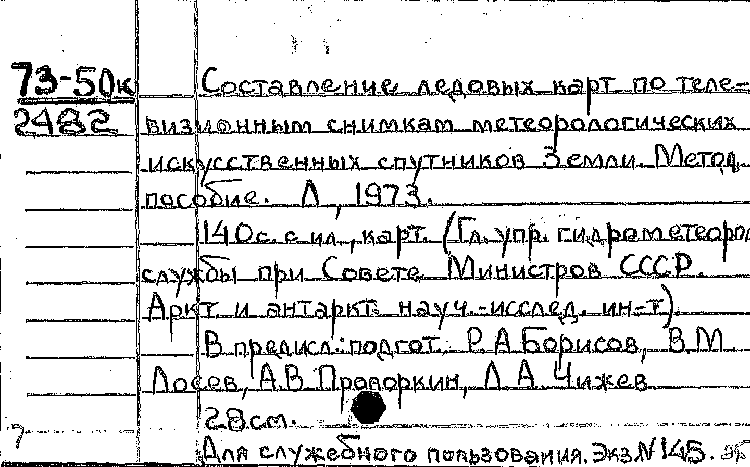 73-50к
2482
Составление ледовых карт по теле-
визионным снимкам метеорологических
искусственных спутников Земли. Метод.
пособие. Л, 1973.
140с. с ил., карт. (Гл. упр. гидрометеорол
службы при Совете Министров СССР.
Аркт. и антаркт. науч.-исслед. ин-т).
В предисл.: подгот. Р.А.Борисов, В.М.
Лосев, А.В. Проворкин, Л.А. Чижев
28см.
Для служебного пользования. Экз N 145.